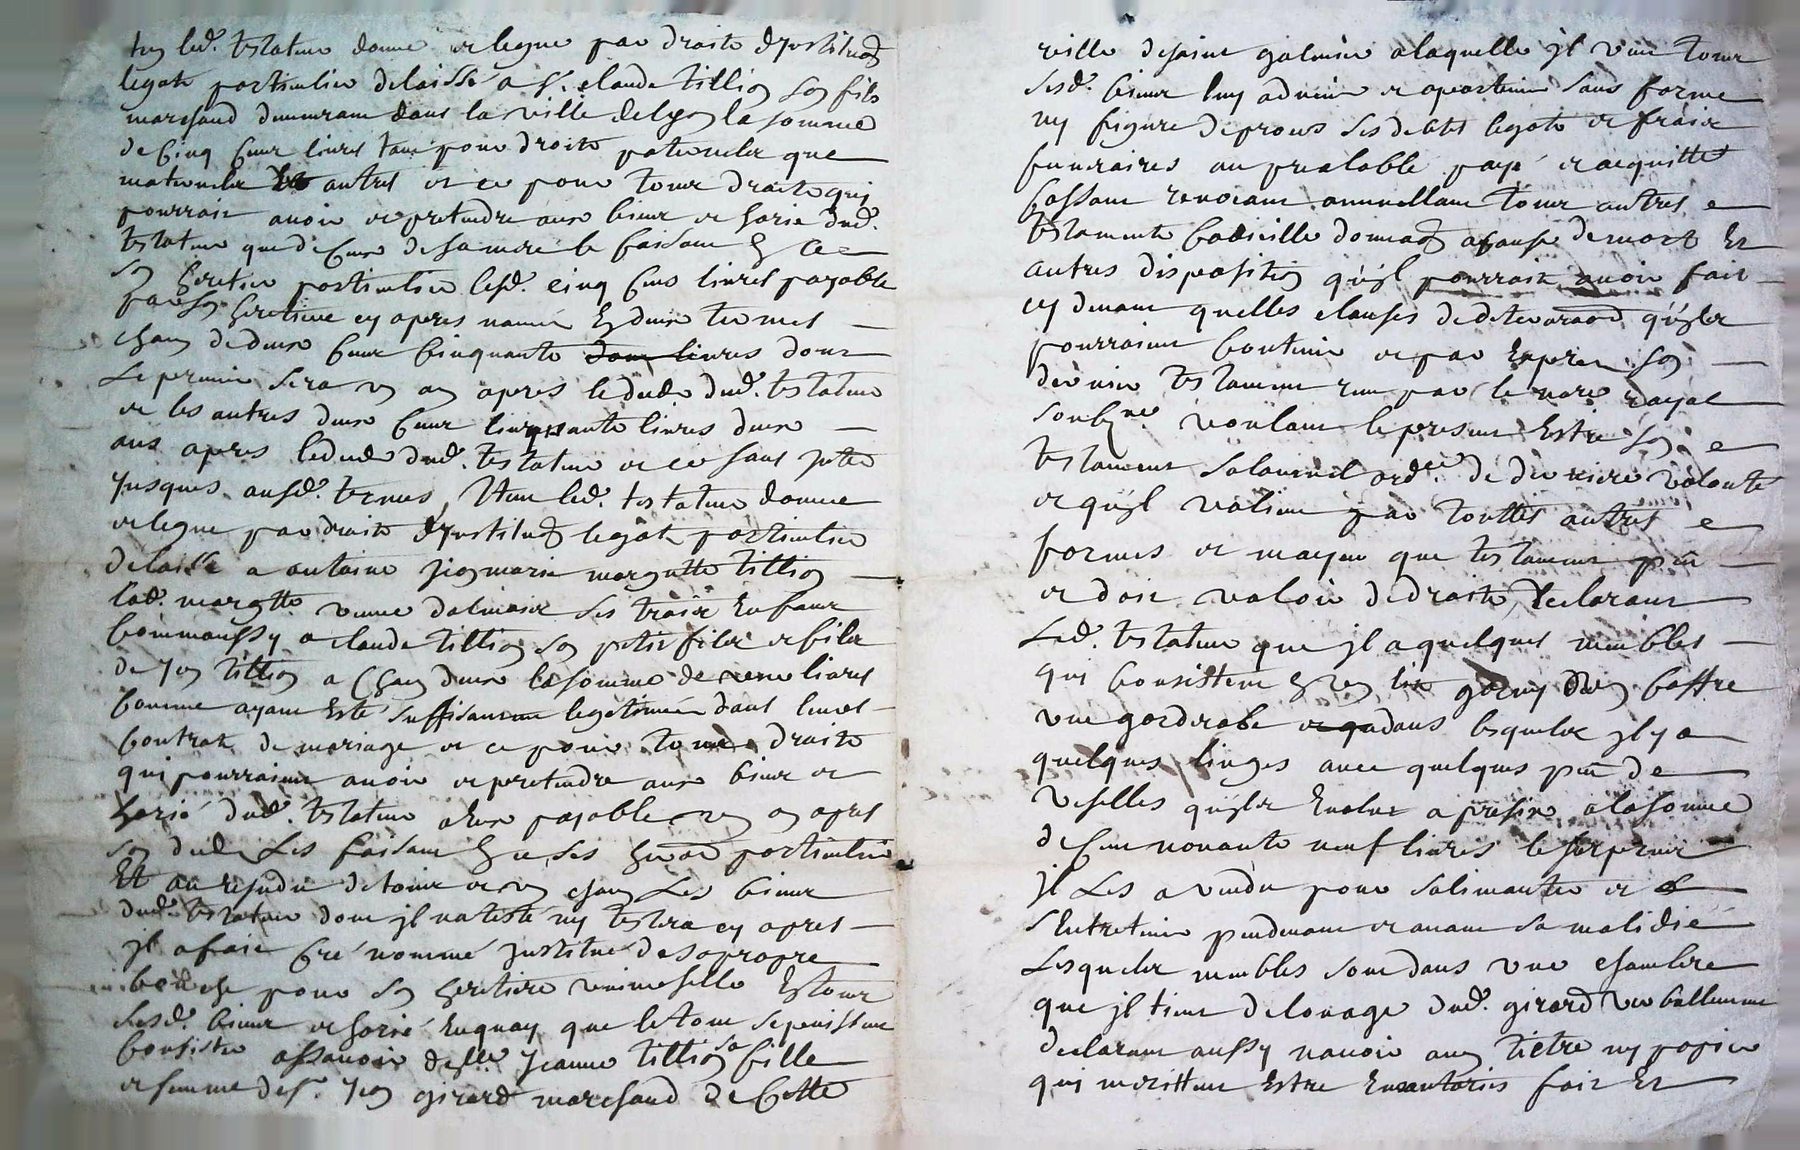 led. testateur donne et legue par droit d'institu͠on
legat particulier delaissé a sr. claude tillion son fils
marchand dumurant dans la ville de lyon la somme
de cinq cens livres tant pour droits paternelz que
maternelz autres et ce pour tous droits quj
pourroit avoir et pretendre aux biens et horie dud.
testateur que diceux de sa mere le faisant en ce
son heretier particulier lesd. cinq cens livres payable
par son heretiere cy apres nommée En deux termes
chacun de deux cens cinquante livres dont
Le premier sera un an apres le deceds dud. testateur
et les autres deux cens cinquante livres deux
ans apres le deceds dud. testateur et ce sans jnterets
jusques ausd. termes, Item led. testateur donne
et legue par droit d'institu͠on legat particulier
delaisse a antoine jean marie margotte tillion
lad. margotte veuve dalmais ses trois Enfans
comm'aussy a claude tillion son petit filz et filz
de jean tillion a chacun d'eux la somme de livres
comme ayant Esté suffisamment legetimés dans leurs
contrats de mariage et ce pour tous droits
qui pourroient avoir et pretendre aux biens et
horie dud. testateur a Eux payable un an apres
son deceds Les faisant En ce ses particuliers
Et au residu de tous et un chacun Les biens
dud. testateur dont jl na testé ny testera cy apres
jl a fait créé nommé justitué de sa propre
bouche pour son heretiere universelle En tous
sesd. biens et horie En quoy que le tout se puisse
consister assavoir delle. jeanne tillion sa fille
et femme de sr. jean girard marchand de cette
ville de saint galmier a laquelle jl veut tous
sesd. biens luy advenir et apartenir sans forme
ny figure de proces ses debtes legats et fraix
funeraires au prealable payé et acquittés
cassant revocant annullant tous autres
testaments codicille dona͠on a cause de mort Et
autres disposition qu'jl pourroit avoir fait
cy devant quelles clauses de qu'jlz
pourroient contenir et par Exprez son
dernier testament reçu par le no͠re royal
soubzne. voulant le present Estre son
testament solaunel ordre. de derniere volonté
et qu'jl valine par touttes autres
formes et moyen que testament peu͠t
et doit valoir de droit, Declarant
Led. testateur que jl a quelques meubles
qui consistent En un lit garny un coffre
une garderobe dans lesquelz jl y a
quelques linges avec quelques de
veselles qu'jlz Evalue a present a la somme
de cent nonante neuf livres le surplus
jl Les a vendu pour s'alimanter et
s'Entretenir pendant et avant sa maladie
Lesquelz meubles sont dans une chambre
que jl tient de louage dud. girard
declarant aussy n'avoir aucun tietre ny papier
qui merittent Estre Enventoriés fait Et